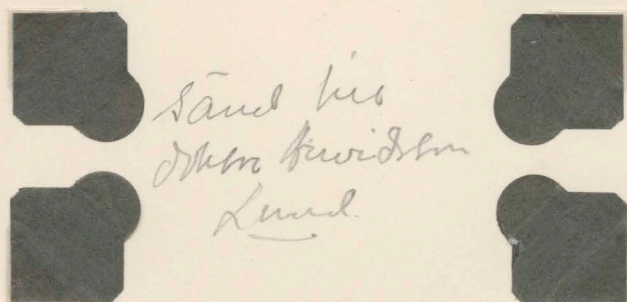 sänd hio
Johan Arvidson
Lund.